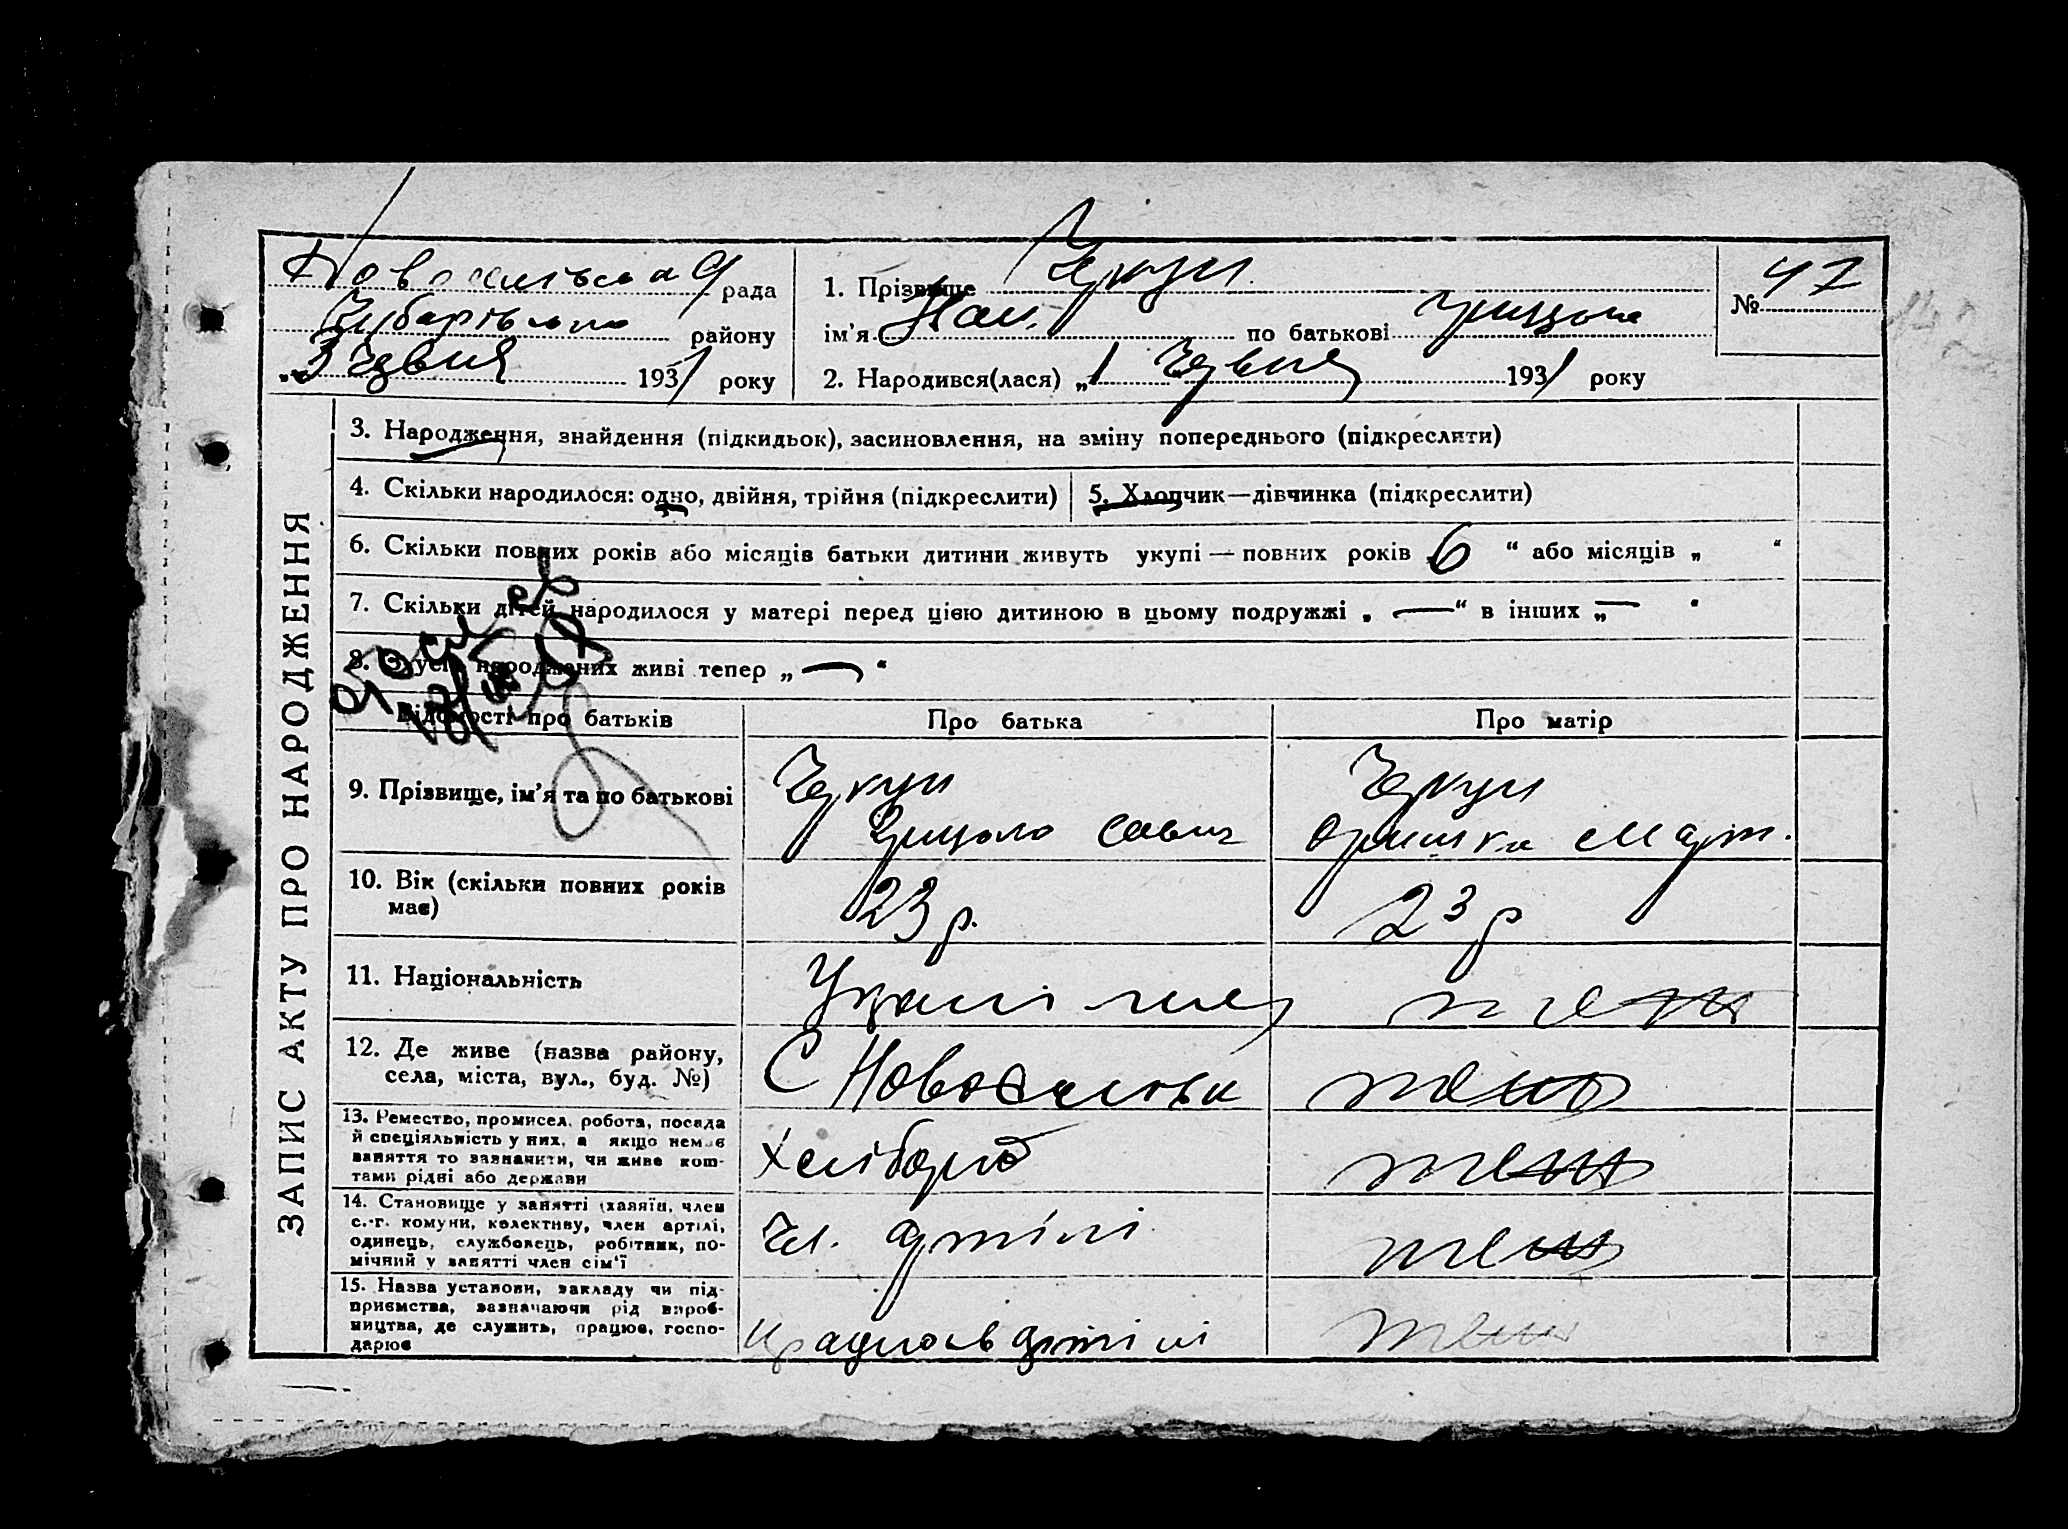 Новоселівська рада
Чубарівського району
„3 Червня 1931 року
1. Прізвище Черкун
ім'я по батькові
№ 47
2. Народився(лася) „1 Червня 1931 року
ЗАПИС АКТУ ПРО НАРОДЖЕННЯ
3. Народження, знайдення (підкидьок), засиновлення, на зміну попереднього (підкреслити)
4. Скільки народилося: одно, двійня, трійня (підкреслити)
5. Хлопчик—дівчинка (підкреслити)
6. Скільки повних років або місяців батьки дитини живуть укупі — повних років 6 “ або місяців „ “
7. Скільки дітей народилося у матері перед цією дитиною в цьому подружжі „ — “ в інших „ — “
8. З усіх народжених живі тепер „ — “
Відомості про батьків
Про батька
Про матір
9. Прізвище, ім'я та по батькові
Черкун
Савич
Черкун
Оришка Март.
10. Вік (скільки повних років
має)
23 р.
23 р
11. Національність
теж
12. Де живе (назва району,
села, міста, вул., буд. №)
С Новоселівка
теж
13. Ремество, промисел, робота, посада
й спеціяльність у них, а якщо немає
заняття то зазначити, чи живе кош-
тами рідні або держави
Хлібороб
теж
14. Становище у занятті (хазяїн, член
с.-г. комуни, колективу, член артілі,
одинець, службовець, робітник, по-
мічний у занятті член сім'ї
Чл. артілі
теж
15. Назва установи, закладу чи під-
приємства, зазначаючи рід вироб-
ництва, де служить, працює, госпо-
дарює
артілі
теж